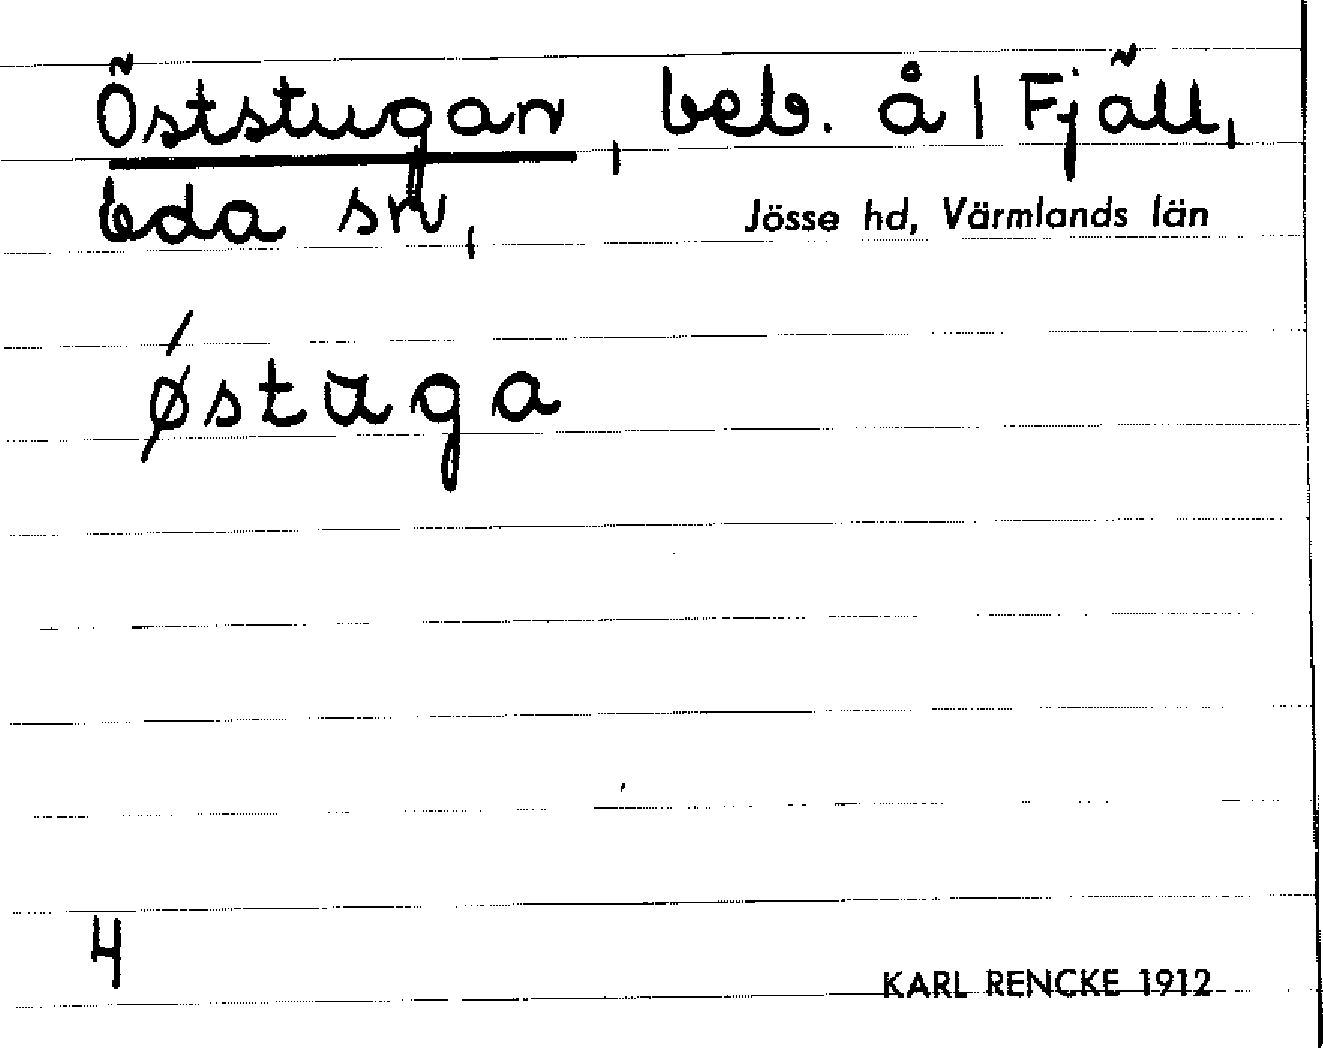 Öststugan, beb. å | Fjäll,
Eda sn, Jösse hd, Värmlands län
østuga
4
KARL RENCKE 1912